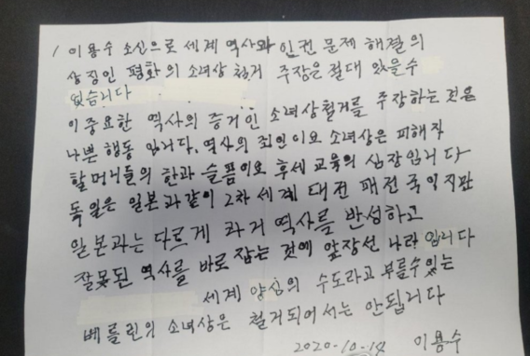 / 이용수 소신으로 세계 역사와 인권 문제 해결의
상징인 평화의 소녀상 철거 주장은 절대 있을수
없습니다
이 중요한 역사의 증거인 소녀상철거를 주장하는 것은
나쁜 행동 입니다. 역사의 죄인이요 소녀상은 피해자
할머니들의 한과 슬픔이요 후세 교육의 심장입니다
독일은 일본과 같이 2차 세계 대전 패전국 익지만
일본과는 다르게 과거 역사를 반성하고
잘못된 역사를 바로 잡는 것에 앞장선 나라 입니다
세계 양심의 수도라고 부를수있는
베를린의 소녀상은 철거되어서는 안됩니다
2020-10-14 이용수